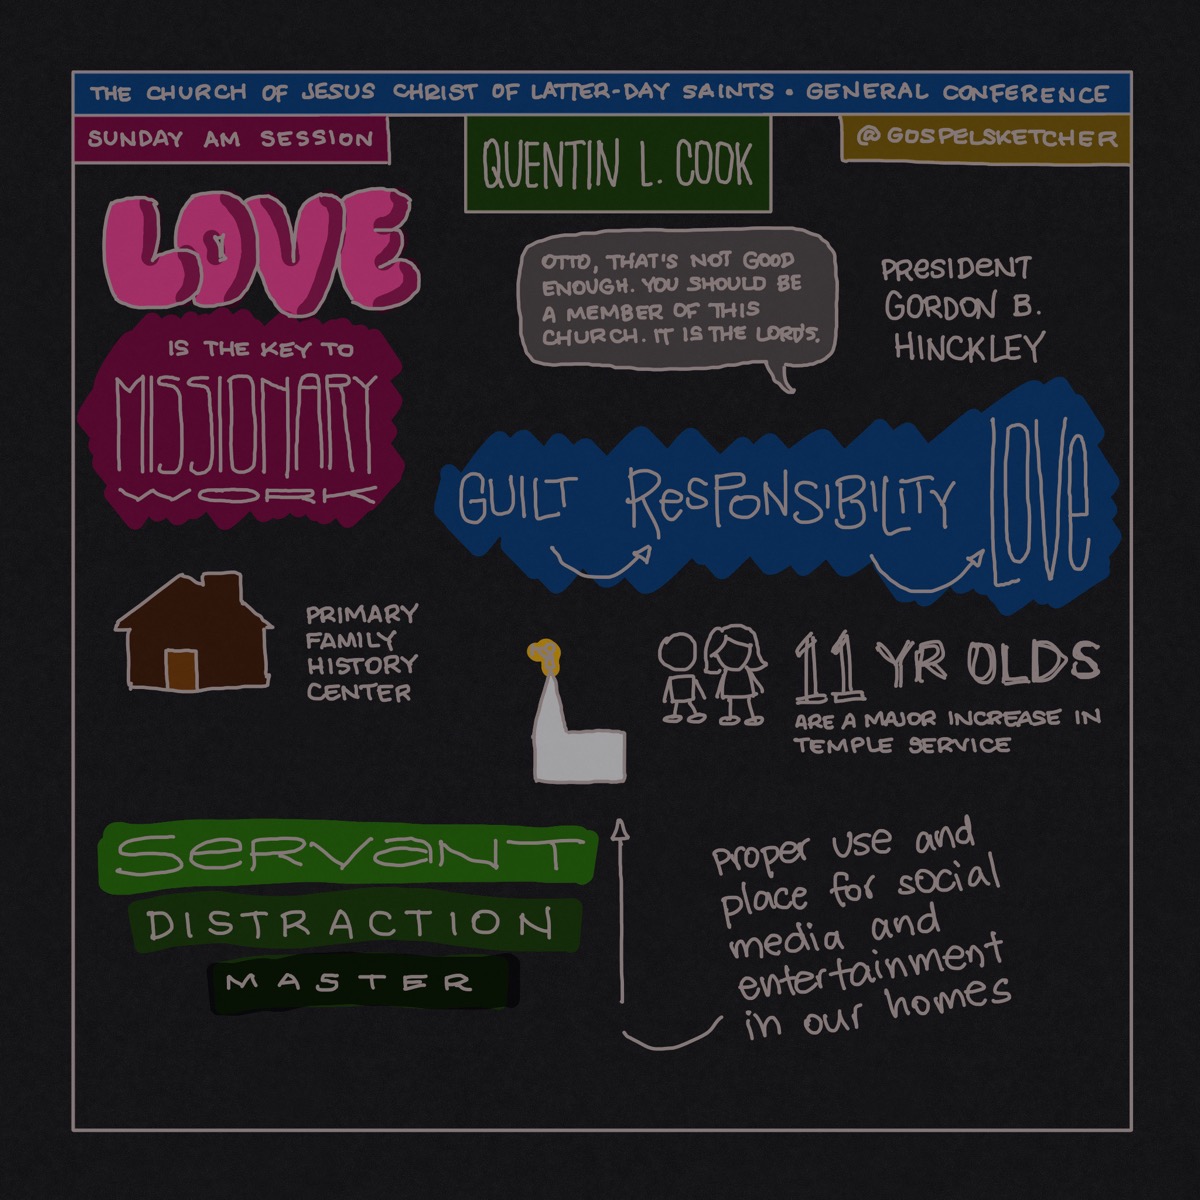 THE CHURCH OF JESUS CHRIST OF LATTER-DAY SAINTS • GENERAL CONFERENCE
SUNDAY AM SESSION
QUENTIN L. COOK
@GOSPELSKETCHER
LOVE
IS THE KEY TO
MISSIONARY
WORK
OTTO, THAT'S NOT GOOD
ENOUGH. YOU SHOULD BE
A MEMBER OF THIS
CHURCH. IT IS THE LORD'S.
PRESIDENT
GORDON B.
HINCKLEY
GUILT RESPONSIBILITY LOVE
PRIMARY
FAMILY
HISTORY
CENTER
11 YR OLDS
ARE A MAJOR INCREASE IN
TEMPLE SERVICE
SERVANT
DISTRACTION
MASTER
proper use and
place for social
media and
entertainment
in our homes